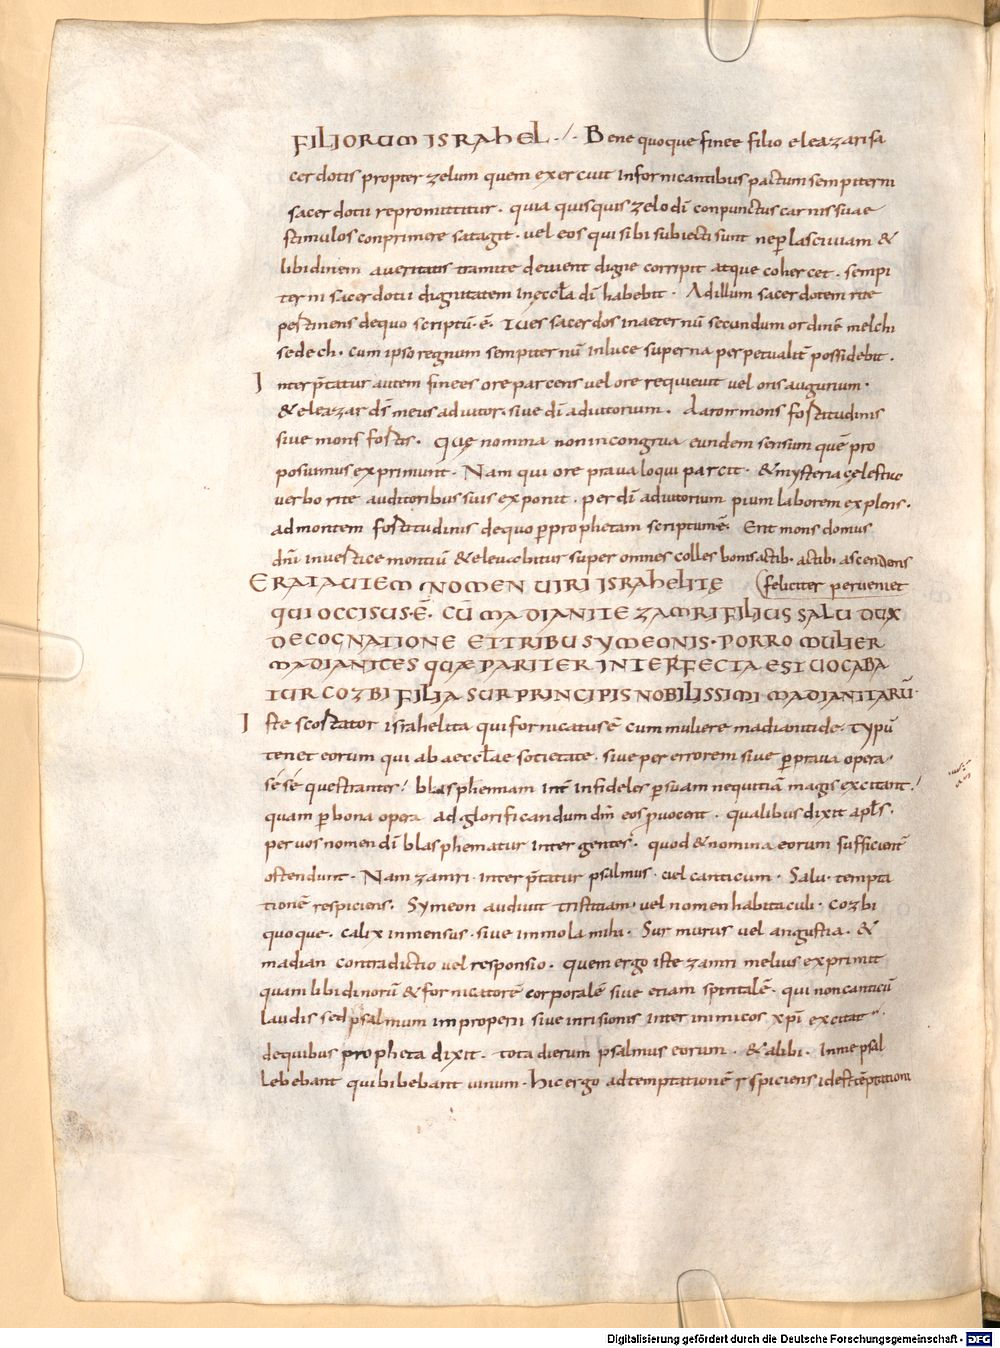 FILIORUM ISRAHEL · / · Bene quoque finee filio eleazari sa
cerdotis propter zelum quem exercuit in fornicantibus pactum sempiterni
sacerdotii repromittitur · quia quisquis zelo dī conpunctus carnis suae
stimulos conprimere satagit · vel eos qui sibi subiecti sunt ne per lasciviam &
libidinem a veritatis tramite devient digne corripit atque cohercet · sempi
terni sacerdotii dignitatem in eccła dī habebit · Ad illum sacerdotem rite
pertinens de quo scriptū · ē · Tu es sacerdos in aeternū secundum ordinē melchi
sedech · cum ipso regnum sempiternū in luce superna perpetualit̄ possidebit ·
Interp̄tatur autem finees ore parcens vel ore requievit vel oris augurium ·
& eleazar ds̄ meus adiutor · sive dī adiutorium · Aaron mons fortitudinis
sive mons fortis · Quę nomina non incongrua eundem sensum quē pro
posuimus exprimunt · Nam qui ore prava loqui parcit · & mysteria cęlestiu
verbo rite auditoribus suis exponit · per dī adiutorium pium laborem explens ·
ad montem fortitudinis de quo p prophetam scriptum ē · Erit mons domus
dn̄i in vertice montiū & elevabitur super omnes colles bonis actib · actib · ascendens
ERAT AUTEM NOMEN VIRI ISRAHELITĘ (feliciter perveniet
QUI OCCISUS · Ē · CŪ MADIANITE ZAMRI FILIUS SALU DUX
DE COGNATIONE ET TRIBU SYMEONIS · PORRO MULIER
MADIANITES QUÆ PARITER INTERFECTA EST UOCABA
TUR COZBI FILIA SUR PRINCIPIS NOBILISSIMI MADIANITARŪ ·
Iste scortator israhelita qui fornicatus ē cum muliere madianitide · Typū
tenet eorum qui ab aecclae societate · sive per errorem sive p prava opera ·
sé sé questranter / blasphemiam int̄ infideles p suam nequitiā magis excitant /
quam p bona opera ad glorificandum dn̄m eos p̱vocent · qualibus dixit apłs ·
per vos nomen dī blasphematur inter gentes · quod & nomina eorum sufficient̄
ostendunt · Nam zamri · interp̄tatur psalmus · vel canticum · Salu · tempta
tionē respiciens · Symeon audivit tristitiam · vel nomen habitaculi · Cozbi
quoque · calix inmensus · sive immola mihi · Sur murus vel angustia · &
madian contradictio vel responsio · quem ergo iste zamri melius exprimit
quam libidinorū & fornicatorē corporalē sive etiam spiritalē · qui non canticū
laudis sed psalmum improperii sive inrisionis inter inimicos xp̄i excitat ·
de quibus propheta dixit · tota die rum psalmus eorum · & alibi · In me psal
lebebant qui bibebant vinum · hic ergo ad temptationē respiciens id est tēptationi